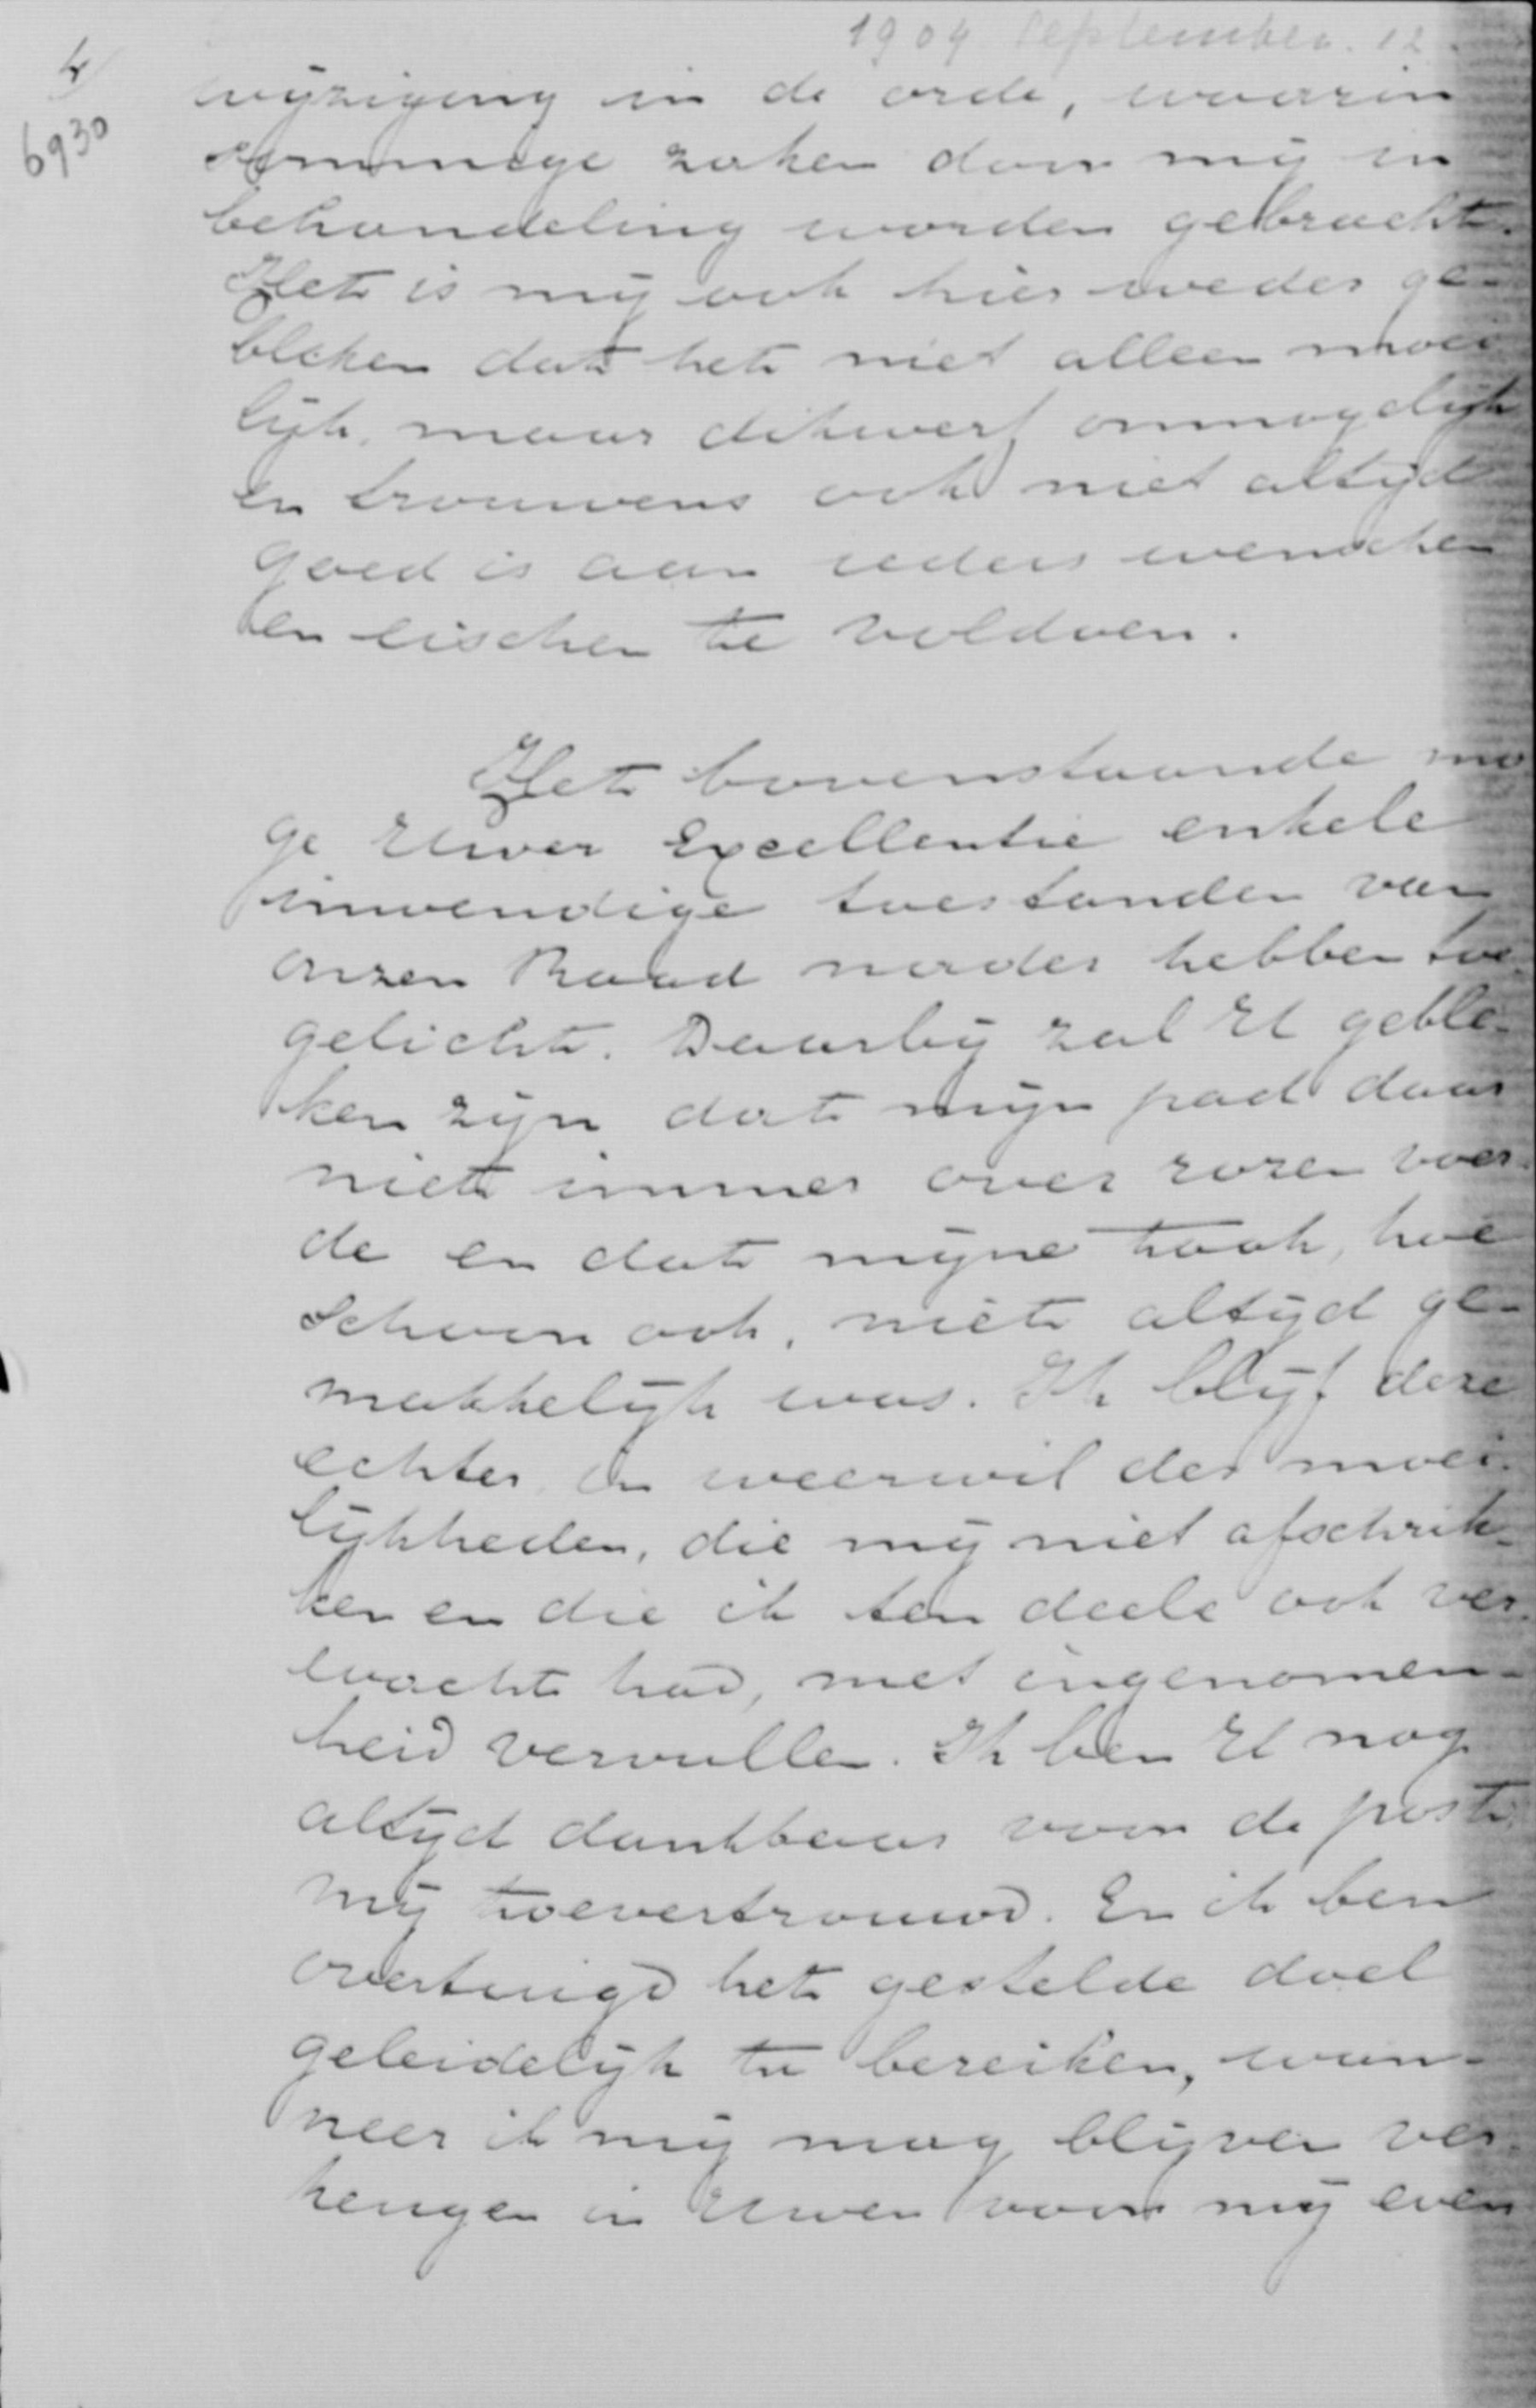 1904 September. 12
4
6930
wijziging in de orde, waarin
sommige zaken door mij in
behandeling worden gebracht.
Het is mij ook hier weder ge-
bleken dat het niet alleen moei
lijk, maar dikwerf onmogelijk
en trouwens ook niet altijd
goed is aan ieders wenschen
en eischen te voldoen.
Het bovenstaande mo
ge Uwer Excellentie enkele
inwendige toestanden van
onzen Raad nader hebben toe
gelicht. Daarbij zal U geble-
ken zijn dat mijn pad daar
niet immer over rozen voer-
de en dat mijne taak, hoe
schoon ook, niet altijd ge-
makkelijk was. Ik blijf deze
echter in weerwil der moei-
lijkheden, die mij niet afschrik-
ken en die ik ten deele ook ver-
wacht had, met ingenomen-
heid vervullen. Ik ben U nog
altijd dankbaar voor de post
mij toevertrouwd. En ik ben
overtuigd het gestelde doel
geleidelijk te bereiken, wan-
neer ik mij mag blijven ver-
heugen in Uwen voor mij even